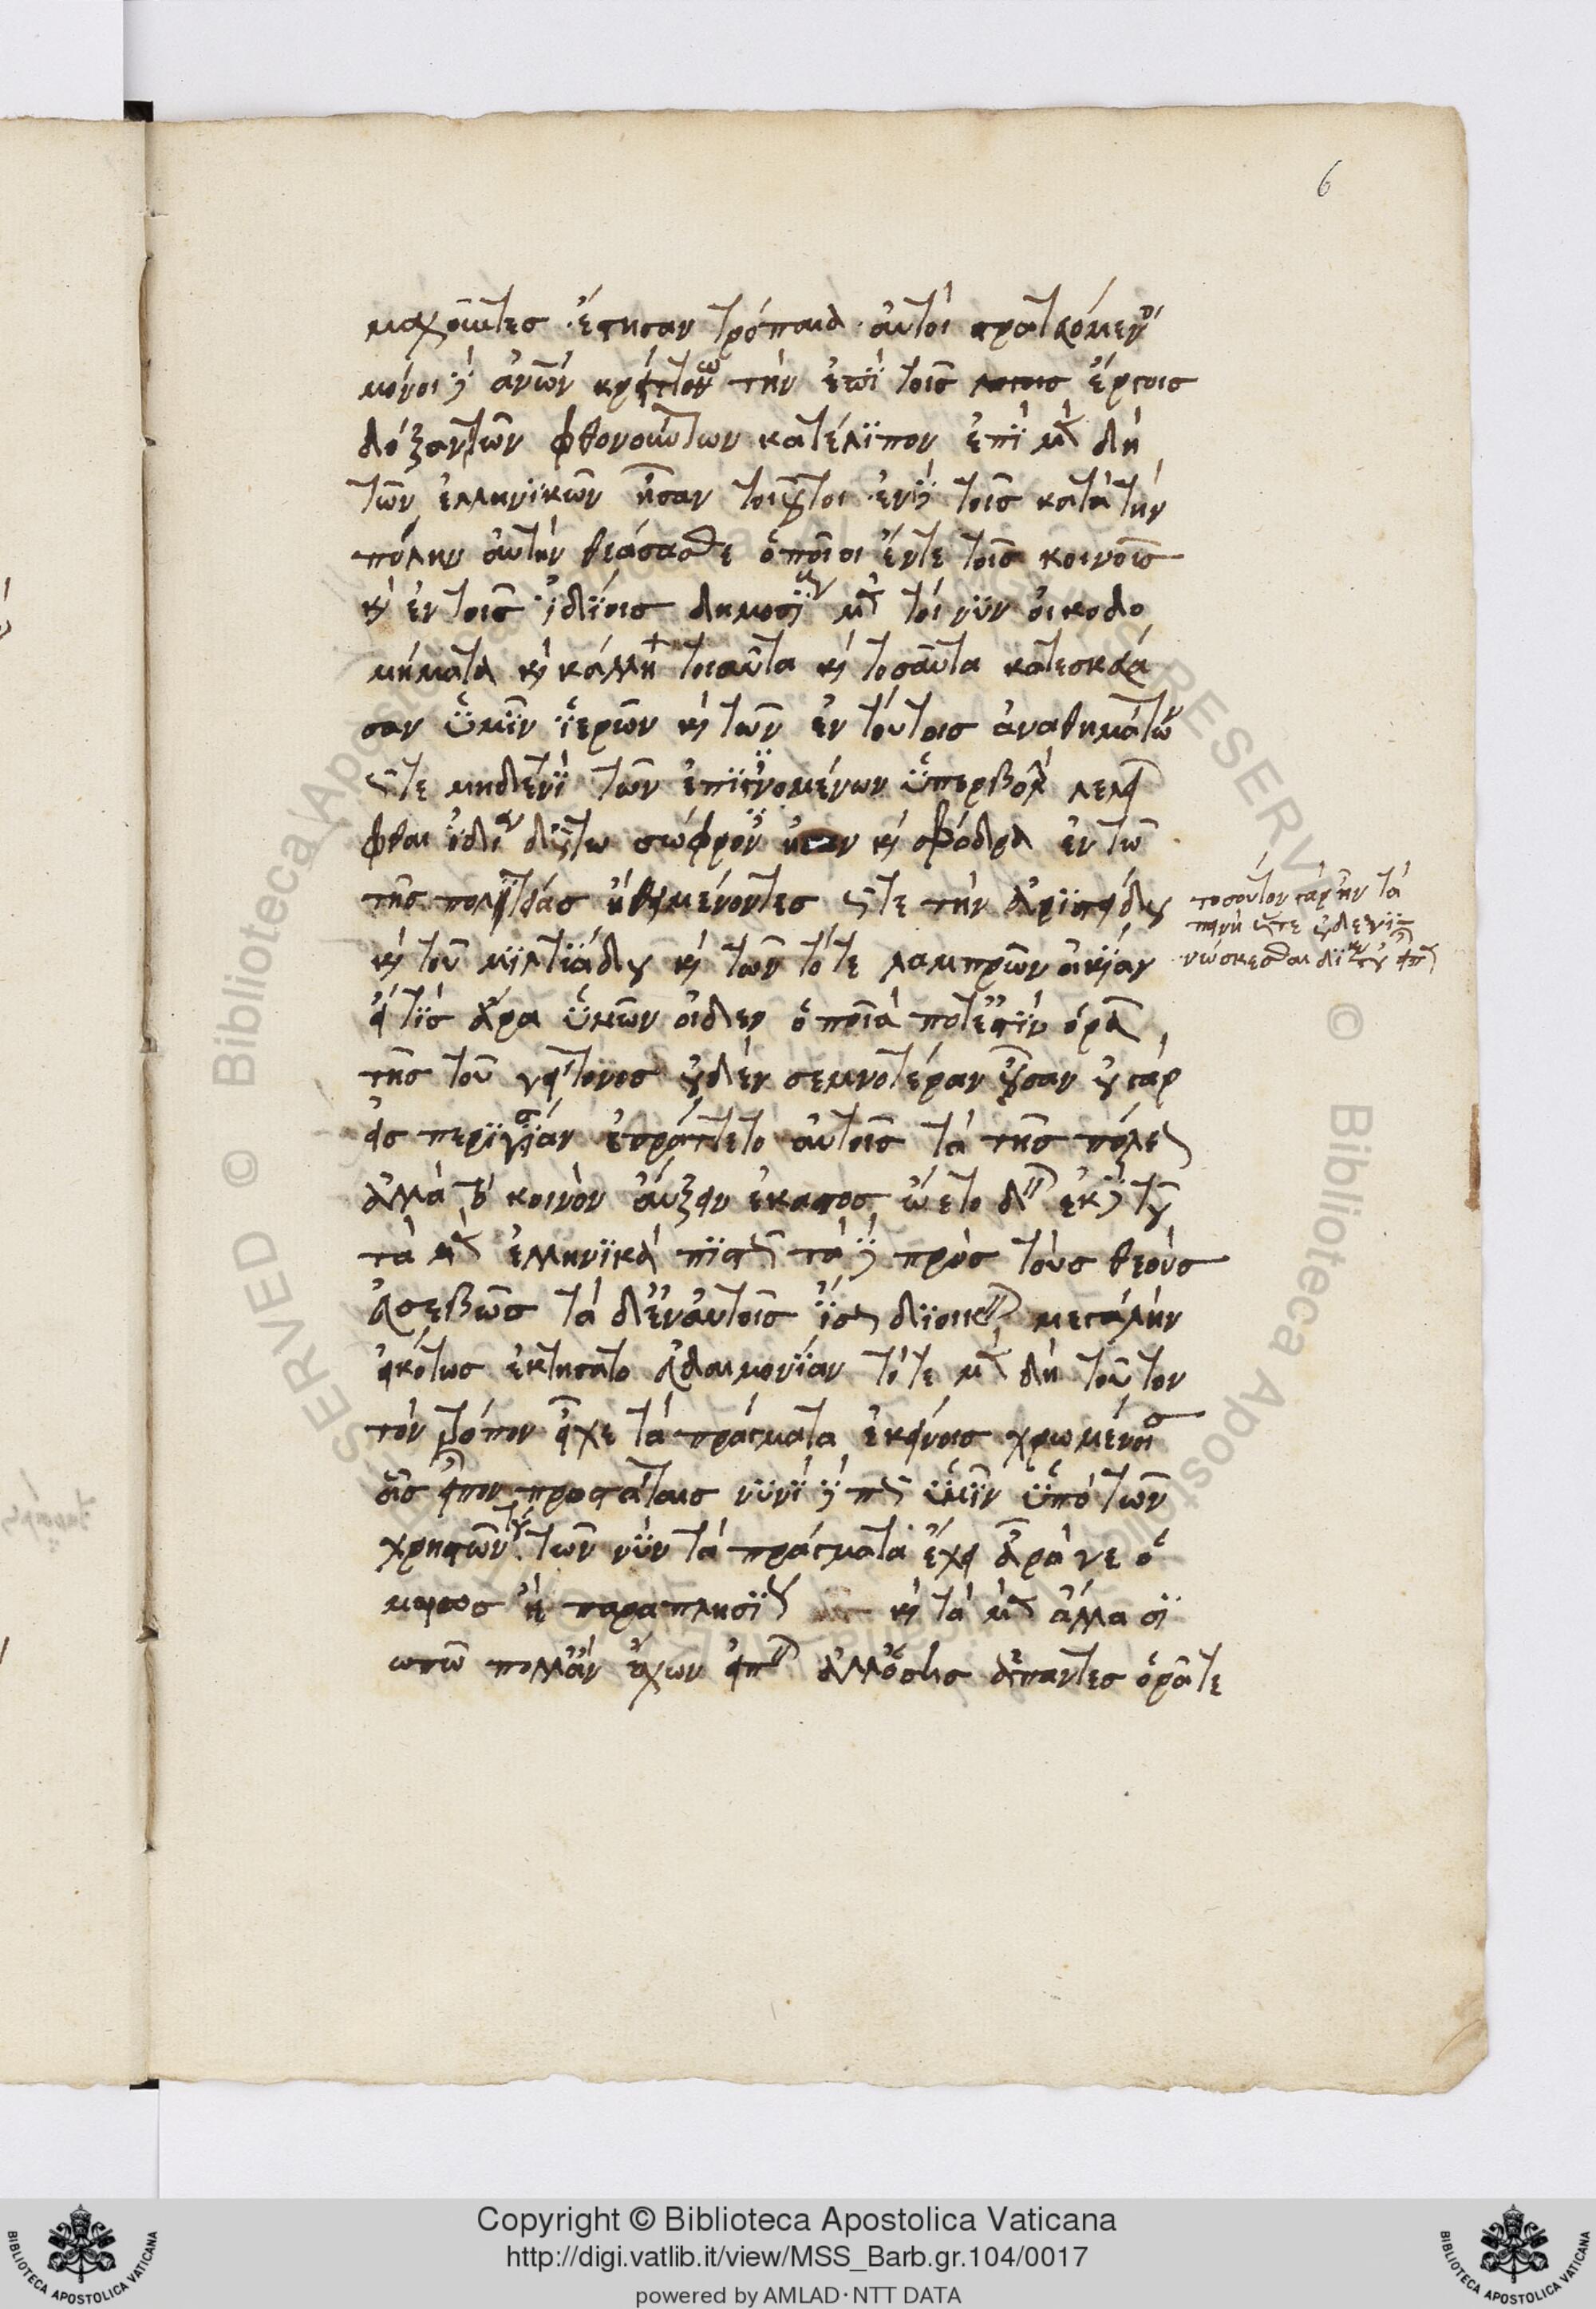 6
μαχοῦντες ἔστησαν τρόπαια αὐτοὶ στρατευόμενοι
μόνοι δὲ ἀνων κρείττονω τὴν ἐπὶ τοῖς λοτοις ἔργοις
δόξαν τῶν φθονούντων κατέλιπον ἐπὶ μὲν δὴ
τῶν ἑλληνικῶν ἦσαν τοιοῦτοι ἐν δὲ τοῖς κατὰ τὴν
πόλιν αὐτὴν θεάσασθε ὁποῖοι ἔν τε τοῖς κοινοῖς
καὶ ἐν τοῖς ἰδίοις δημοσίαν μὲν τοίνυν οἰκοδο
μήματα καὶ κάλλη τοιαῦτα καὶ τοσαῦτα κατεσκεύα
σαν ὑμῖν ἱερῶν καὶ τῶν ἐν τούτοις ἀναθημάτων
ὥστε μηδενὶ τῶν ἐπιγινομένων ὑπερβολὴν λελεῖ
φθαι ἰδίαν δ' οὕτω σώφρονες ἦσαν καὶ σφόδρα ἐν τῶ
τῆς πολιτείας ἤθει μένοντες ὥστε τὴν ἀριστείδου
καὶ τοῦ μιλτιάδου καὶ τῶν τότε λαμπρῶν οἰκίαν
εἴ τις ἄρα ὑμῶν οἶδεν ὁποία ποτέ ἐστιν ὁρᾶ
τῆς τοῦ γείτονος οὐδὲν σεμνοτέραν οὖσαν οὐ γὰρ
εἰς περιουσίαν ἐπράττετο αὐτοῖς τὰ τῆς πόλεως
ἀλλὰ τὸ κοινὸν αὔξειν ἕκαστος ὤετο δεῖν ἐκ δὲ τοῦ
τὰ μὲν ἑλληνικὰ πιστῶς τὰ δὲ πρὸς τοὺς θεοὺς
εὐσεβῶς τὰ δ' ἐν αὐτοῖς ἴσως διοικεῖν μεγάλην
εἰκότως ἐκτήσατο εὐδαιμονίαν τότε μὲν δὴ τοῦτον
τὸν τρόπον εἶχε τὰ πράγματα ἐκείνοις χρωμένοις
οἷς εἶπον προστάταις νυνὶ δὲ πῶς ὑμῖν ὑπὸ τῶν
χρηστῶν τού των νῦν τὰ πράγματα ἔχει ἆρά γε ὁ
μοίως ἢ παραπλησίως καὶ τὰ μὲν ἄλλα σι
ωπῶ πολλὰ ἂν ἔχων εἰπεῖν ἀλλ' ὅσης ἅπαντες ὁρᾶτε
τοσοῦτον γὰρ ἦν τὰ
νώσκεσθαι
Copyright © Biblioteca Apostolica Vaticana
http://digi.vatlib.it/view/MSS_Barb.gr.104/0017
powered by AMLAD·NTT DATA